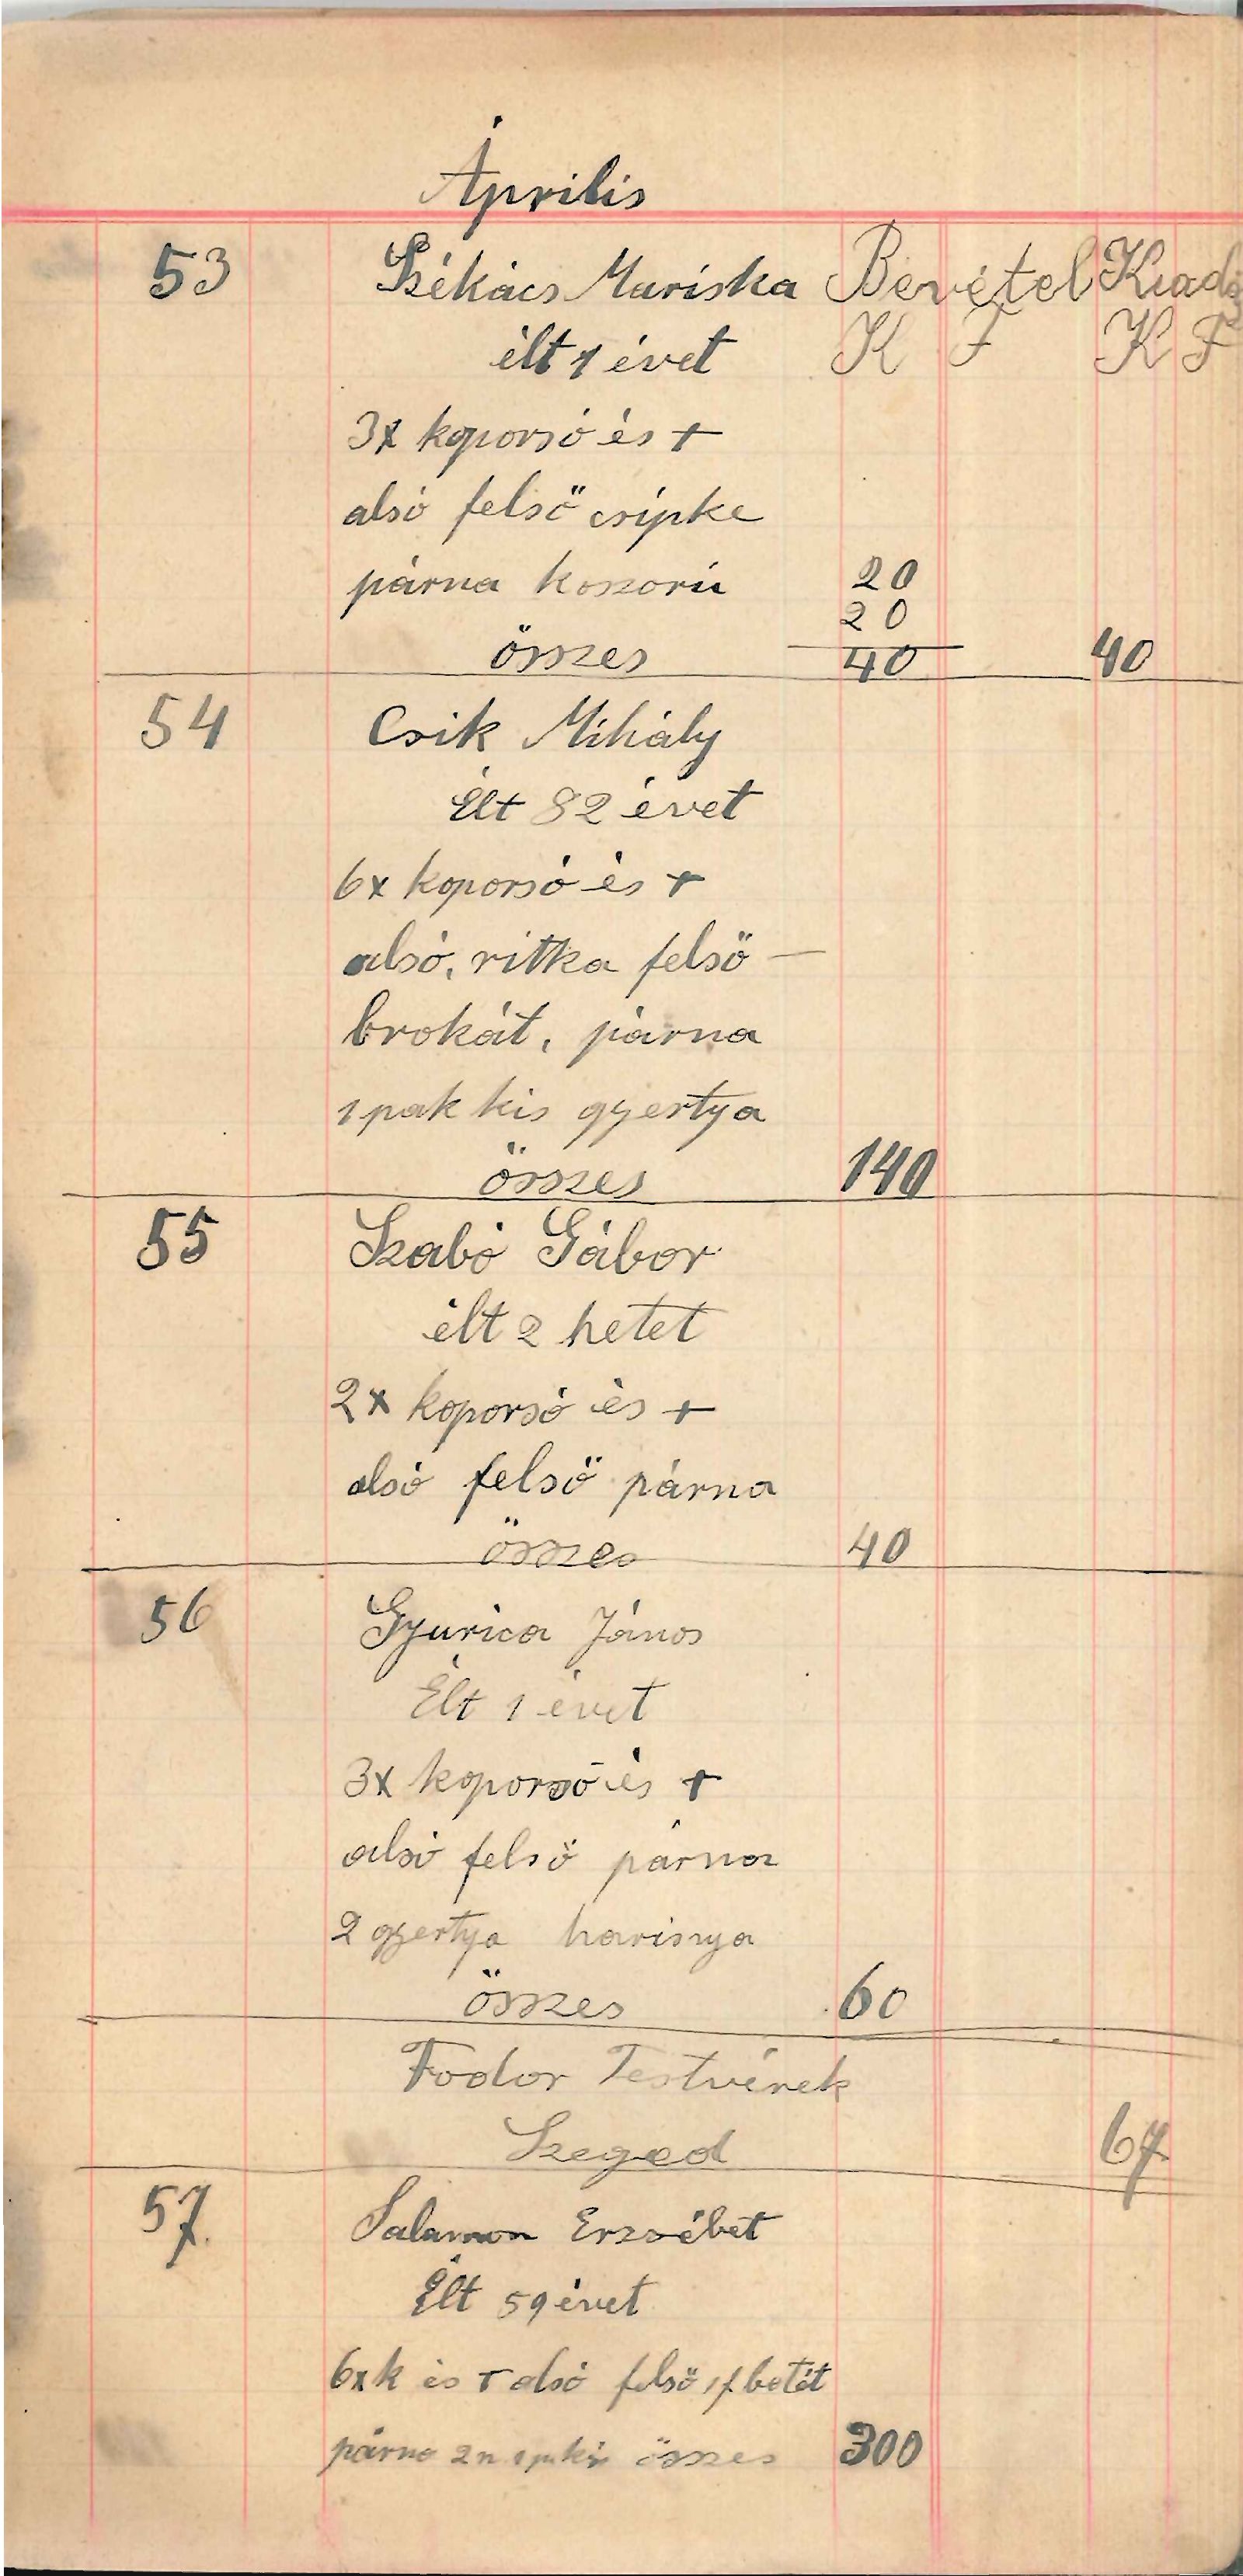 Április
53 Székács Mariska Bevétel Kiadás
élt 1 évet K F K F
3x koporsó és +
alsó felső csipke
párna koszorú 20
20
összes 40 40
54 Csik Mihály
Élt 82 évet
6x koporsó és +
alsó, ritka felső —
brokát, párna
1 pak kis gyertya
összes 140
55 Szabó Gábor
élt 2 hetet
2x koporsó és +
alsó felső párna
összes 40
56 Gyurica János
Élt 1 évet
3x koporsó és +
alsó felső párna
2 gyertya harisnya
összes 60
Fodor Testvérek
Szeged 67
57. Salamon Erzsébet
Élt 59 évet
6x k és + alsó felső 1 f betét
párna 2 n összes 300